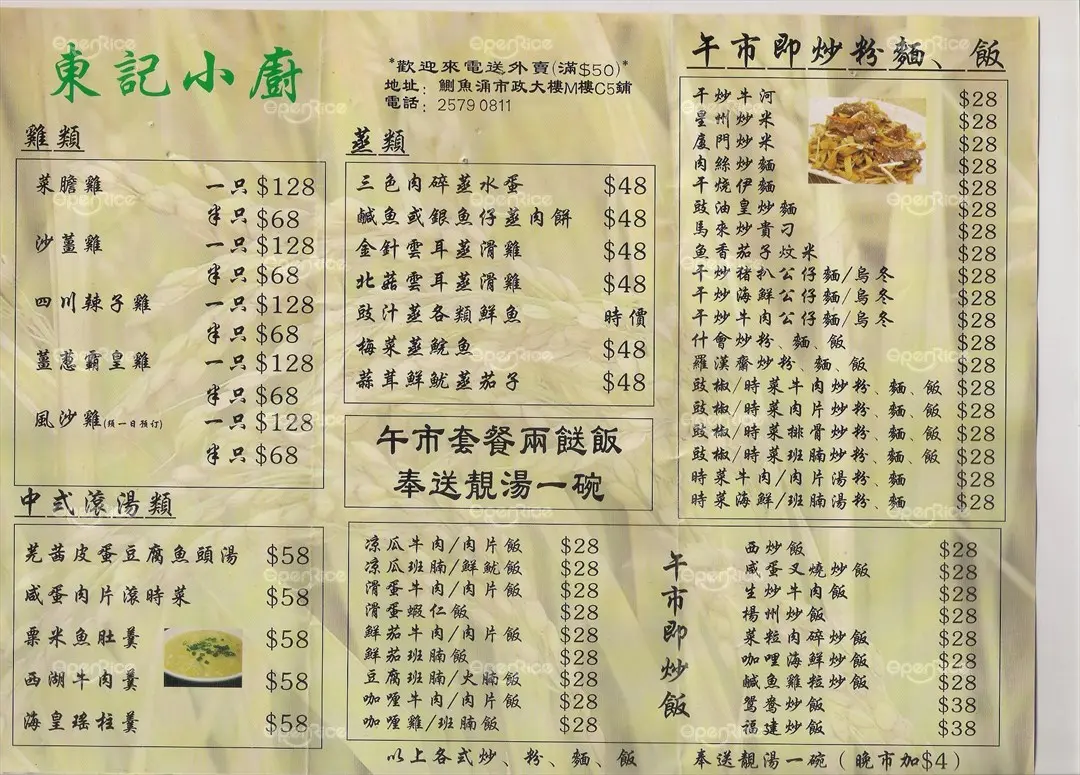 東記小廚
*歡迎來電送外賣(滿$50)*
地址：鰂魚涌市政大樓M樓C5鋪
電話：2579 0811
雞類
菜膽雞 一只 $128
半只 $68
沙薑雞 一只 $128
半只 $68
四川辣子雞 一只 $128
半只 $68
薑蔥霸皇雞 一只 $128
半只 $68
風沙雞(須一日預订) 一只 $128
半只 $68
中式滾湯類
芫茜皮蛋豆腐魚頭湯 $58
咸蛋肉片滾時菜 $58
粟米魚肚羹 $58
西湖牛肉羹 $58
海皇瑤柱羹 $58
蒸類
三色肉碎蒸水蛋 $48
鹹魚或銀魚仔蒸肉餅 $48
金針雲耳蒸滑雞 $48
北菇雲耳蒸滑雞 $48
豉汁蒸各類鮮魚 時價
梅菜蒸鯇魚 $48
蒜茸鮮魷蒸茄子 $48
午市套餐兩餸飯
奉送靚湯一碗
午市即炒粉麵、飯
干炒牛河 $28
星州炒米 $28
廈門炒米 $28
肉絲炒麵 $28
干燒伊麵 $28
豉油皇炒麵 $28
馬來炒貴刁 $28
魚香茄子炆米 $28
干炒豬扒公仔麵/烏冬 $28
干炒海鮮公仔麵/烏冬 $28
干炒牛肉公仔麵/烏冬 $28
什會炒粉、麵、飯 $28
羅漢齋炒粉、麵、飯 $28
豉椒/時菜牛肉炒粉、麵、飯 $28
豉椒/時菜肉片炒粉、麵、飯 $28
豉椒/時菜排骨炒粉、麵、飯 $28
豉椒/時菜班腩炒粉、麵、飯 $28
時菜牛肉/肉片湯粉、麵 $28
時菜海鮮/班腩湯粉、麵 $28
凉瓜牛肉/肉片飯 $28
凉瓜班腩/鮮魷飯 $28
滑蛋牛肉/肉片飯 $28
滑蛋蝦仁飯 $28
鮮茄牛肉/肉片飯 $28
鮮茄班腩飯 $28
豆腐班腩/火腩飯 $28
咖喱牛肉/肉片飯 $28
咖喱雞/班腩飯 $28
午市即炒飯
西炒飯 $28
咸蛋叉燒炒飯 $28
生炒牛肉飯 $28
楊州炒飯 $28
菜粒肉碎炒飯 $28
咖哩海鮮炒飯 $28
鹹魚雞粒炒飯 $28
鴛鴦炒飯 $38
福建炒飯 $38
以上各式炒、粉、麵、飯 奉送靚湯一碗(晚市加$4)